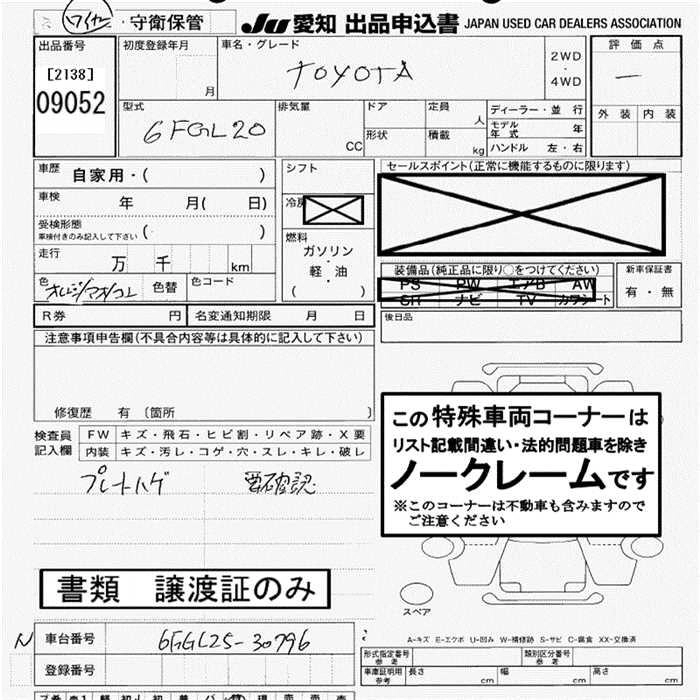 ワイヤー ・守衛保管
JU 愛知 出品申込書 JAPAN USED CAR DEALERS ASSOCIATION
出品番号 初度登録年月 車名・グレード 2WD ・ 4WD 評価点
[2138]
09052 月 TOYOTA ー
型式 排気量 ドア 定員 ディーラー・並 行 外装 内装
6FGL20 人 モデル年式 年
CC 形状 積載 kg ハンドル 左・右
車歴 自家用・( ) シフト セールスポイント(正常に機能するものに限ります)
車検 年 月( 日) 冷房
受検形態 ( )
車検付きのみ記入して下さい
燃料
ガソリン
・
軽・油
( )
走行 万 千 km
装備品(純正品に限り○をつけてください) 新車保証書
PS PW エアB AW 有・無
SR ナビ TV カワシート
色 オレンジ 色替 色コード
R券 円 名変通知期限 月 日 後日品
注意事項申告欄(不具合内容等は具体的に記入して下さい)
修復歴 有 〔箇所 〕
この特殊車両コーナーは
リスト記載間違い・法的問題車を除き
ノークレームです
※このコーナーは不動車も含みますので
ご注意ください
検査員 FW キズ・飛石・ヒビ割・リペア跡・X要
記入欄 内装 キズ・汚レ・コゲ・穴・スレ・キレ・破レ
プレートハゲ 要確認
書類 譲渡証のみ
スペア
N 車台番号 6FGL25-30796
A-キズ E-エクボ U-凹み W-補修跡 S-サビ C-腐食 XX-交換済
登録番号
形式指定番号 参考 類別区分番号 参考
車庫証明用 参考 長さ cm 幅 cm 高さ cm